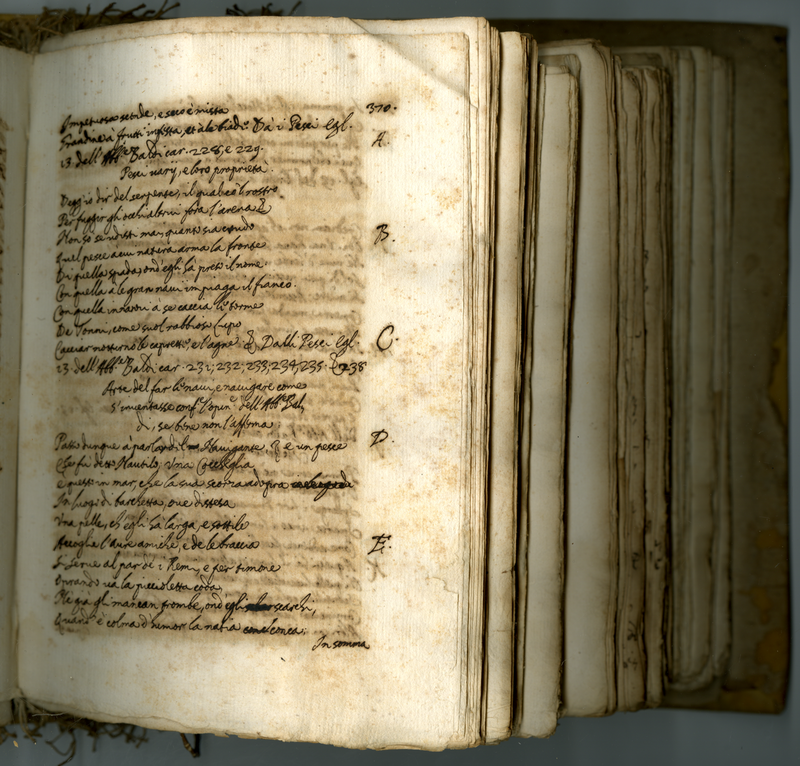 Impetuosa scende, e seco è mista 370.
Grandine à frutti infesta, et à le biade. Dà i Pesci Egl. A.
13. dell'Abb.te Baldi car. 228, e 229.
Pesci varij, e loro proprietà.
Degg'io dir del serpente, il qual col rostro
Per fuggir gli occhi altrui fora l'arena &
Non so se udisti mai, quanto sia crudo B.
Quel pesce a cui natura arma la fronte
Di quella spada, ond'egli hà preso il nome.
Con quella à le gran navi impiaga il fianco.
Con quella innanzi à se caccia le torme
De Tonni, come suol rabbioso lupo
Cacciar notturno le caprette, e l'agne. & Dalli Pesci Egl. C.
13. dell'Abb.te Baldi car. 231, 232, 233, 234, 235. & 238
Arte del far le navi, e navigare come
s'inventasse conf.e l'opin.e dell'Abb.e Bal,
di, se bene non l'afferma
Passo dunque à parlar di Navigante. & e un pesce D.
Che fù detto Nautilo, Una Conchiglia
è questo in mar, che la sua scorza adopra
In luogo di barchetta, ove distesa
Una pelle, ch'egli hà larga, e sottile
Accoglie l'aure amiche, e de le braccia E.
Si serve al par di i Remi, e per timone
Oprando và la piccioletta coda,
Ne gia gli mancan trombe, ond'egli scarchi,
Quand' è colma d'humor la natia conca;
In somma